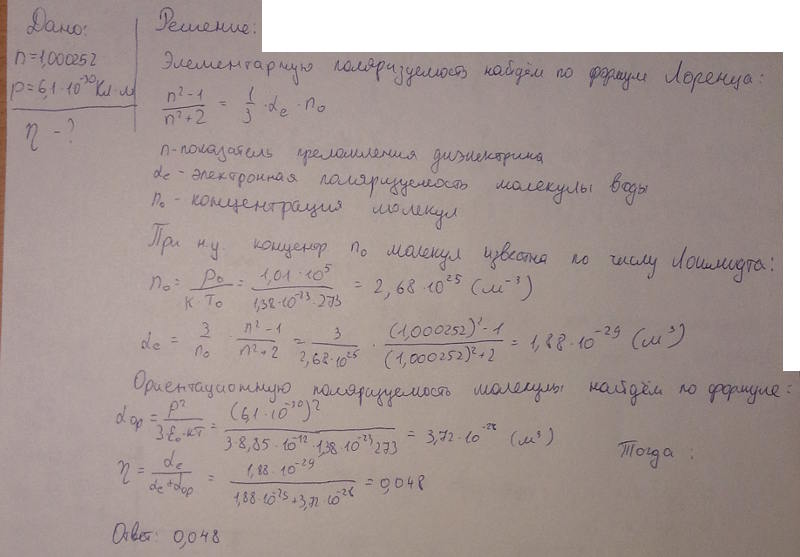 Дано:
n=1,000252
p=6,1·10⁻³⁰Кл·м
η - ?
Решение:
Элементарную поляризуемость найдём по формуле Лоренца:
(n²-1)/(n²+2) = 1/3 · αe · n₀
n-показатель преломления диэлектрика
αe - электронная поляризуемость молекулы воды
n₀ - концентрация молекул
При н.у. концентр n₀ молекул известна по числу Лошмидта:
n₀ = P₀/(K·T₀) = (1,01·10⁵)/(1,38·10⁻²³·273) = 2,68·10²⁵ (м⁻³)
αe = 3/n₀ · (n²-1)/(n²+2) = 3/(2,68·10²⁵) · ((1,000252)²-1)/((1,000252)²+2) = 1,88·10⁻²⁹ (м³)
Ориентационную поляризуемость молекулы найдём по формуле:
αор = p²/(3·ε₀·кT) = (6,1·10⁻³⁰)²/(3·8,85·10⁻¹²·1,38·10⁻²³·273) = 3,72·10⁻²⁸ (м³)
Тогда:
η = αe/(αe+αор) = (1,88·10⁻²⁹)/(1,88·10⁻²⁹+3,72·10⁻²⁸) = 0,048
Ответ: 0,048